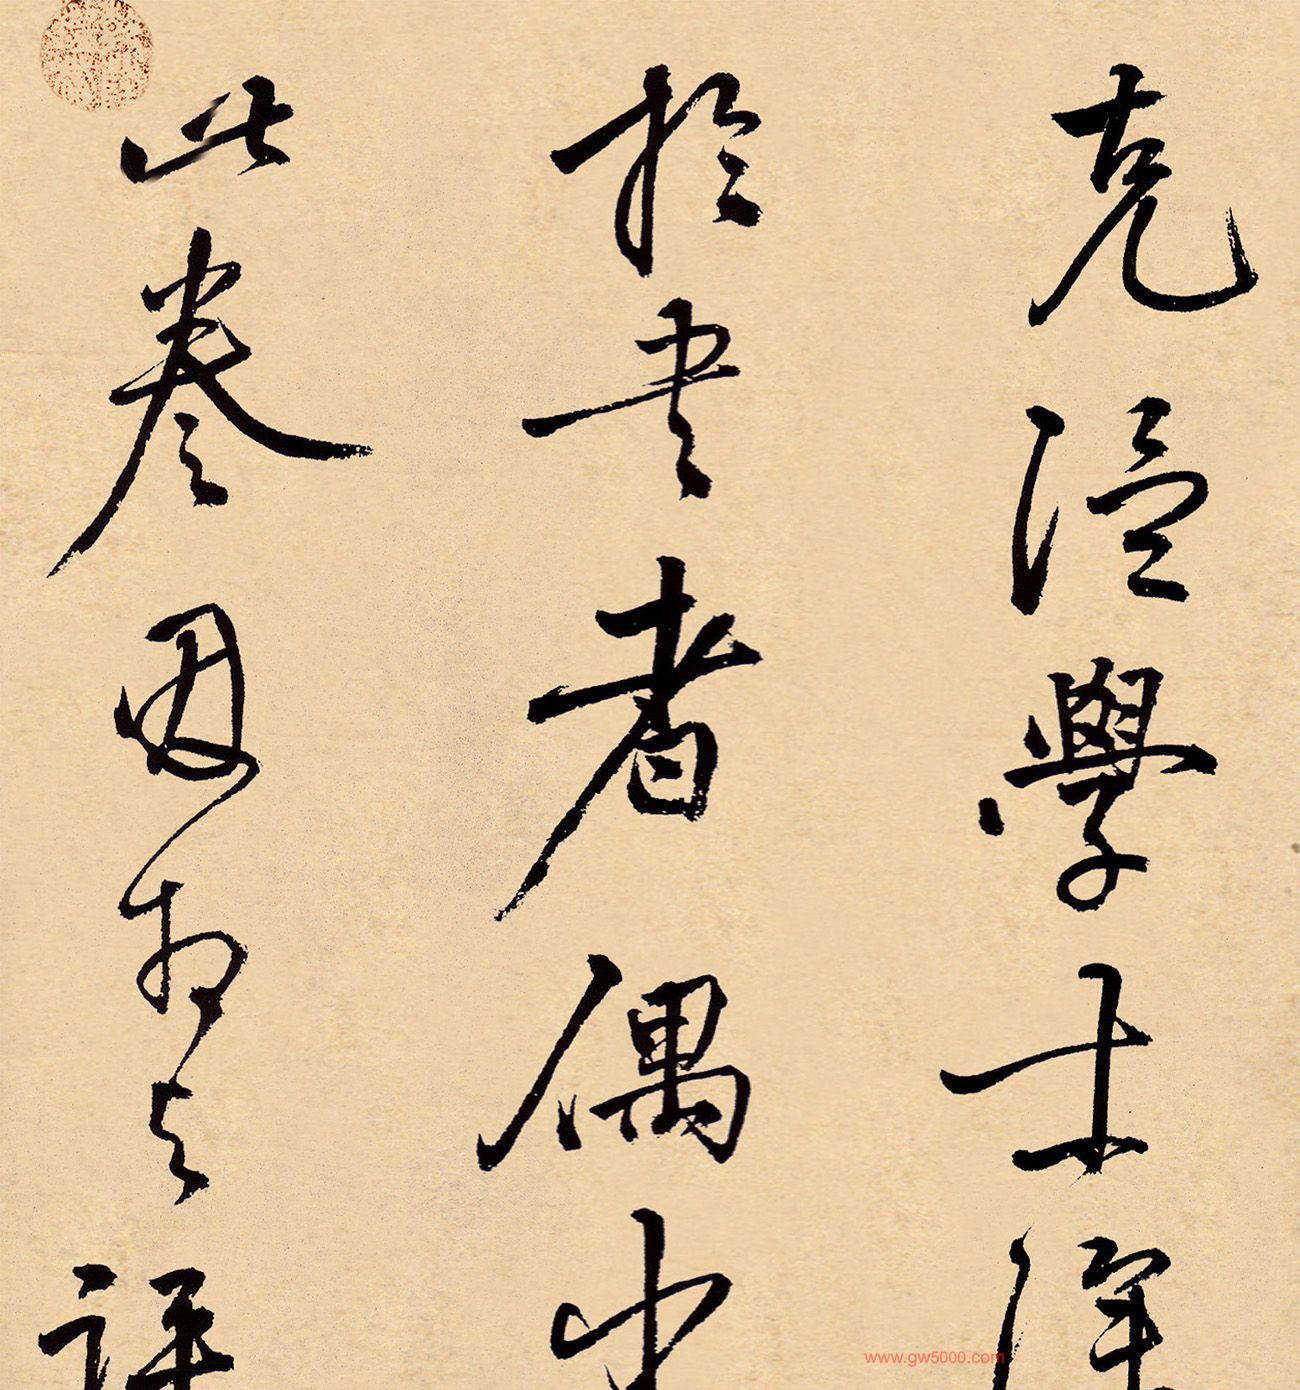 克温學士深
於書者偶出
此卷因相與評
www.gw5000.com